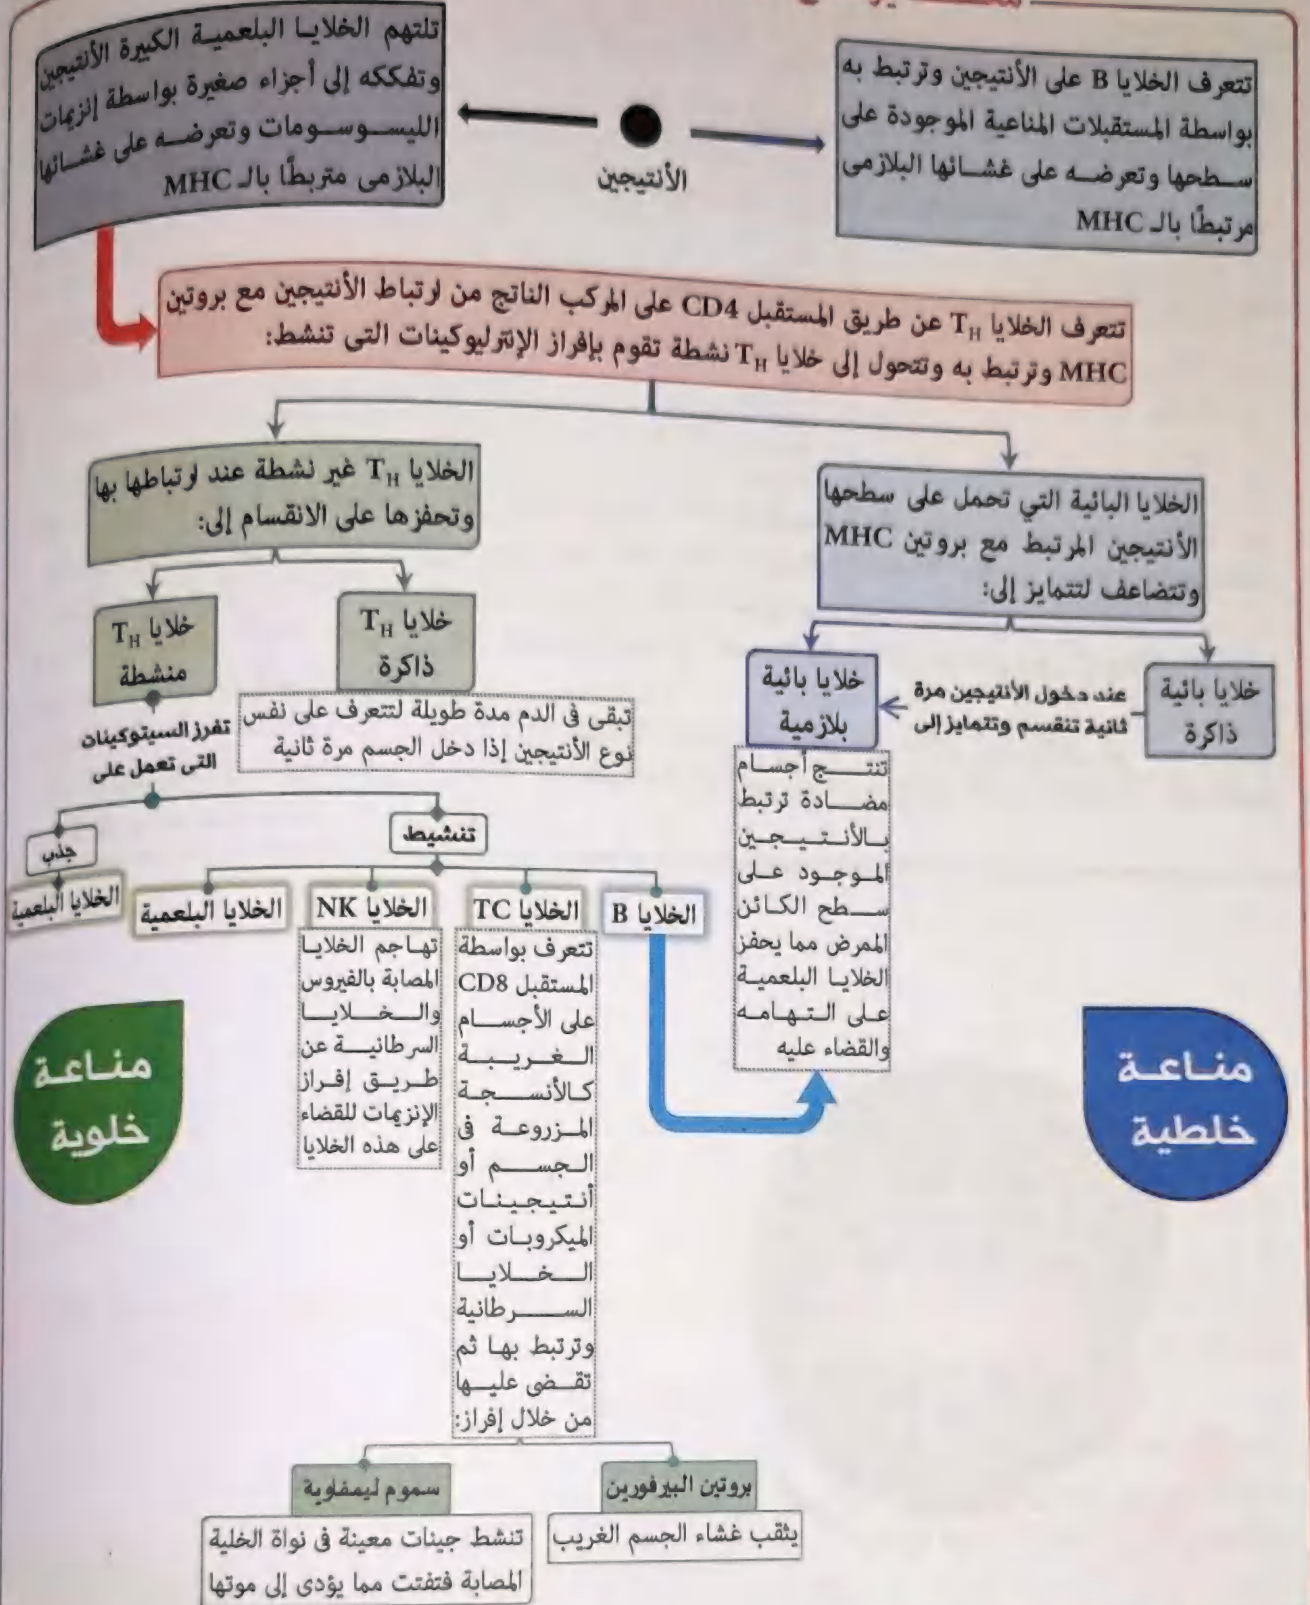 تتعرف الخلايا B على الأنتيجين وترتبط به
بواسطة المستقبلات المناعية الموجودة على
سطحها وتعرضه على غشائها البلازمى
مرتبطًا بالـ MHC
الأنتيجين
تلتهم الخلايا البلعمية الكبيرة الأنتيجين
وتفككه إلى أجزاء صغيرة بواسطة إنزيمات
الليسوسومات وتعرضه على غشائها
البلازمى متربطًا بالـ MHC
تتعرف الخلايا TH عن طريق المستقبل CD4 على المركب الناتج من ارتباط الأنتيجين مع بروتين
MHC وترتبط به وتتحول إلى خلايا TH نشطة تقوم بإفراز الإنترليوكينات التى تنشط:
الخلايا البائية التي تحمل على سطحها
الأنتيجين المرتبط مع بروتين MHC
وتتضاعف لتتمايز إلى:
خلايا بائية
ذاكرة
عند دخول الأنتيجين مرة
ثانية تنقسم وتتمايز إلى
خلايا بائية
بلازمية
تنتج أجسام
مضادة ترتبط
بالأنتيجين
الموجود على
سطح الكائن
الممرض مما يحفز
الخلايا البلعمية
على التهامه
والقضاء عليه
مناعة
خلطية
الخلايا TH غير نشطة عند ارتباطها بها
وتحفزها على الانقسام إلى:
خلايا TH
ذاكرة
تبقى فى الدم مدة طويلة لتتعرف على نفس
نوع الأنتيجين إذا دخل الجسم مرة ثانية
خلايا TH
منشطة
تفرز السيتوكينات
التى تعمل على
تنشيط
جذب
الخلايا B
الخلايا TC
الخلايا NK
الخلايا البلعمية
الخلايا البلعمية
تتعرف بواسطة
المستقبل CD8
على الأجسام
الغريبة
كالأنسجة
المزروعة فى
الجسم أو
أنتيجينات
الميكروبات أو
الخلايا
السرطانية
وترتبط بها ثم
تقضى عليها
من خلال إفراز:
تهاجم الخلايا
المصابة بالفيروس
والخلايا
السرطانية عن
طريق إفراز
الإنزيمات للقضاء
على هذه الخلايا
مناعة
خلوية
بروتين البيرفورين
يثقب غشاء الجسم الغريب
سموم ليمفاوية
تنشط جينات معينة فى نواة الخلية
المصابة فتفتت مما يؤدى إلى موتها